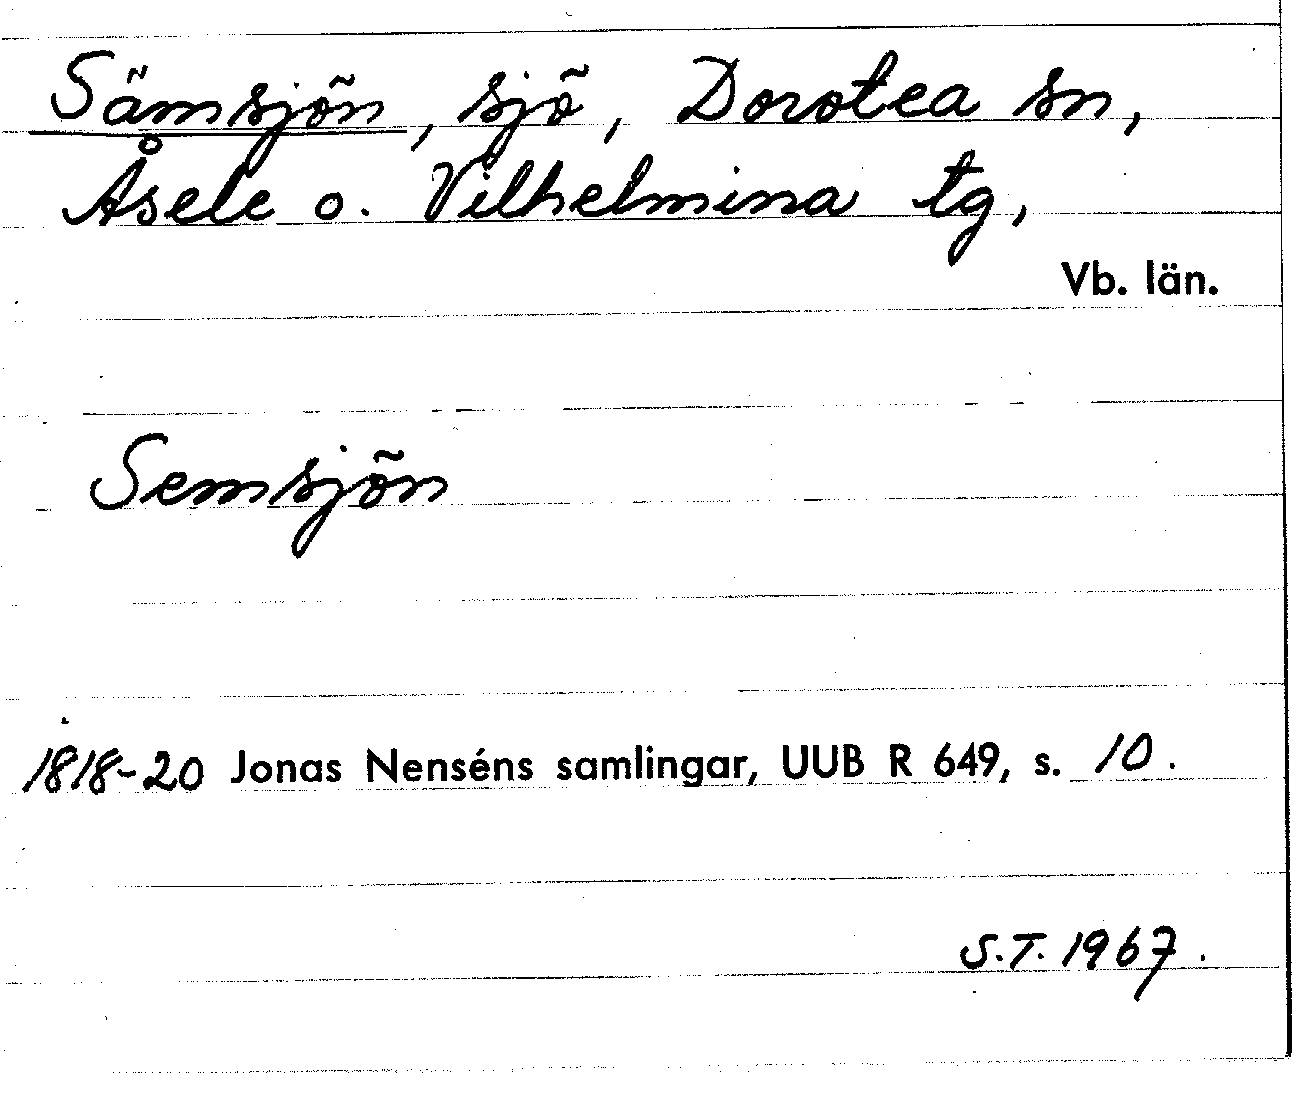 Sämsjön, sjö, Dorotea sn,
Åsele o. Vilhelmina tg,
Vb. län.
Semsjön
1818-20 Jonas Nenséns samlingar, UUB R 649, s. 10.
S.T. 1967.